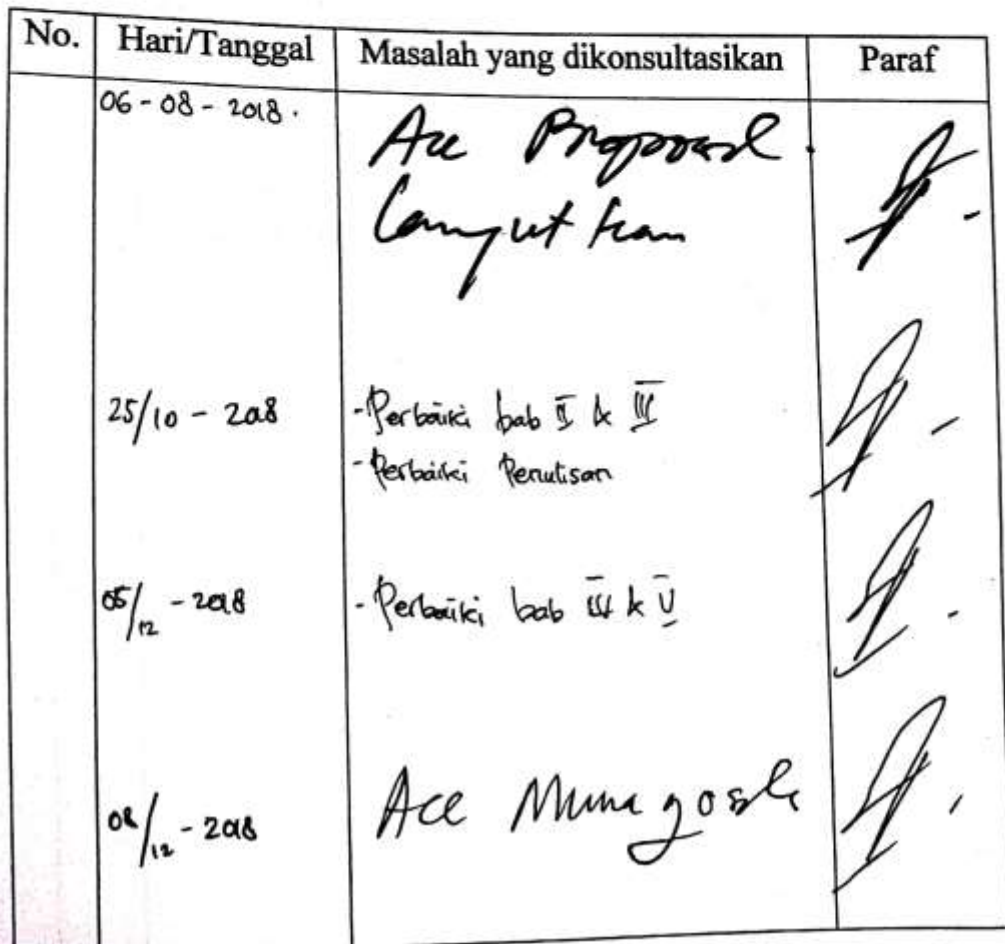 No. Hari/Tanggal Masalah yang dikonsultasikan Paraf
06 - 08 - 2018. Acc Proposal
Lanjutkan
25/10 - 2018 - Perbaiki bab II & III
- Perbaiki Penulisan
05/12 - 2018 - Perbaiki bab III & V
08/12 - 2018 Acc Munaqosah